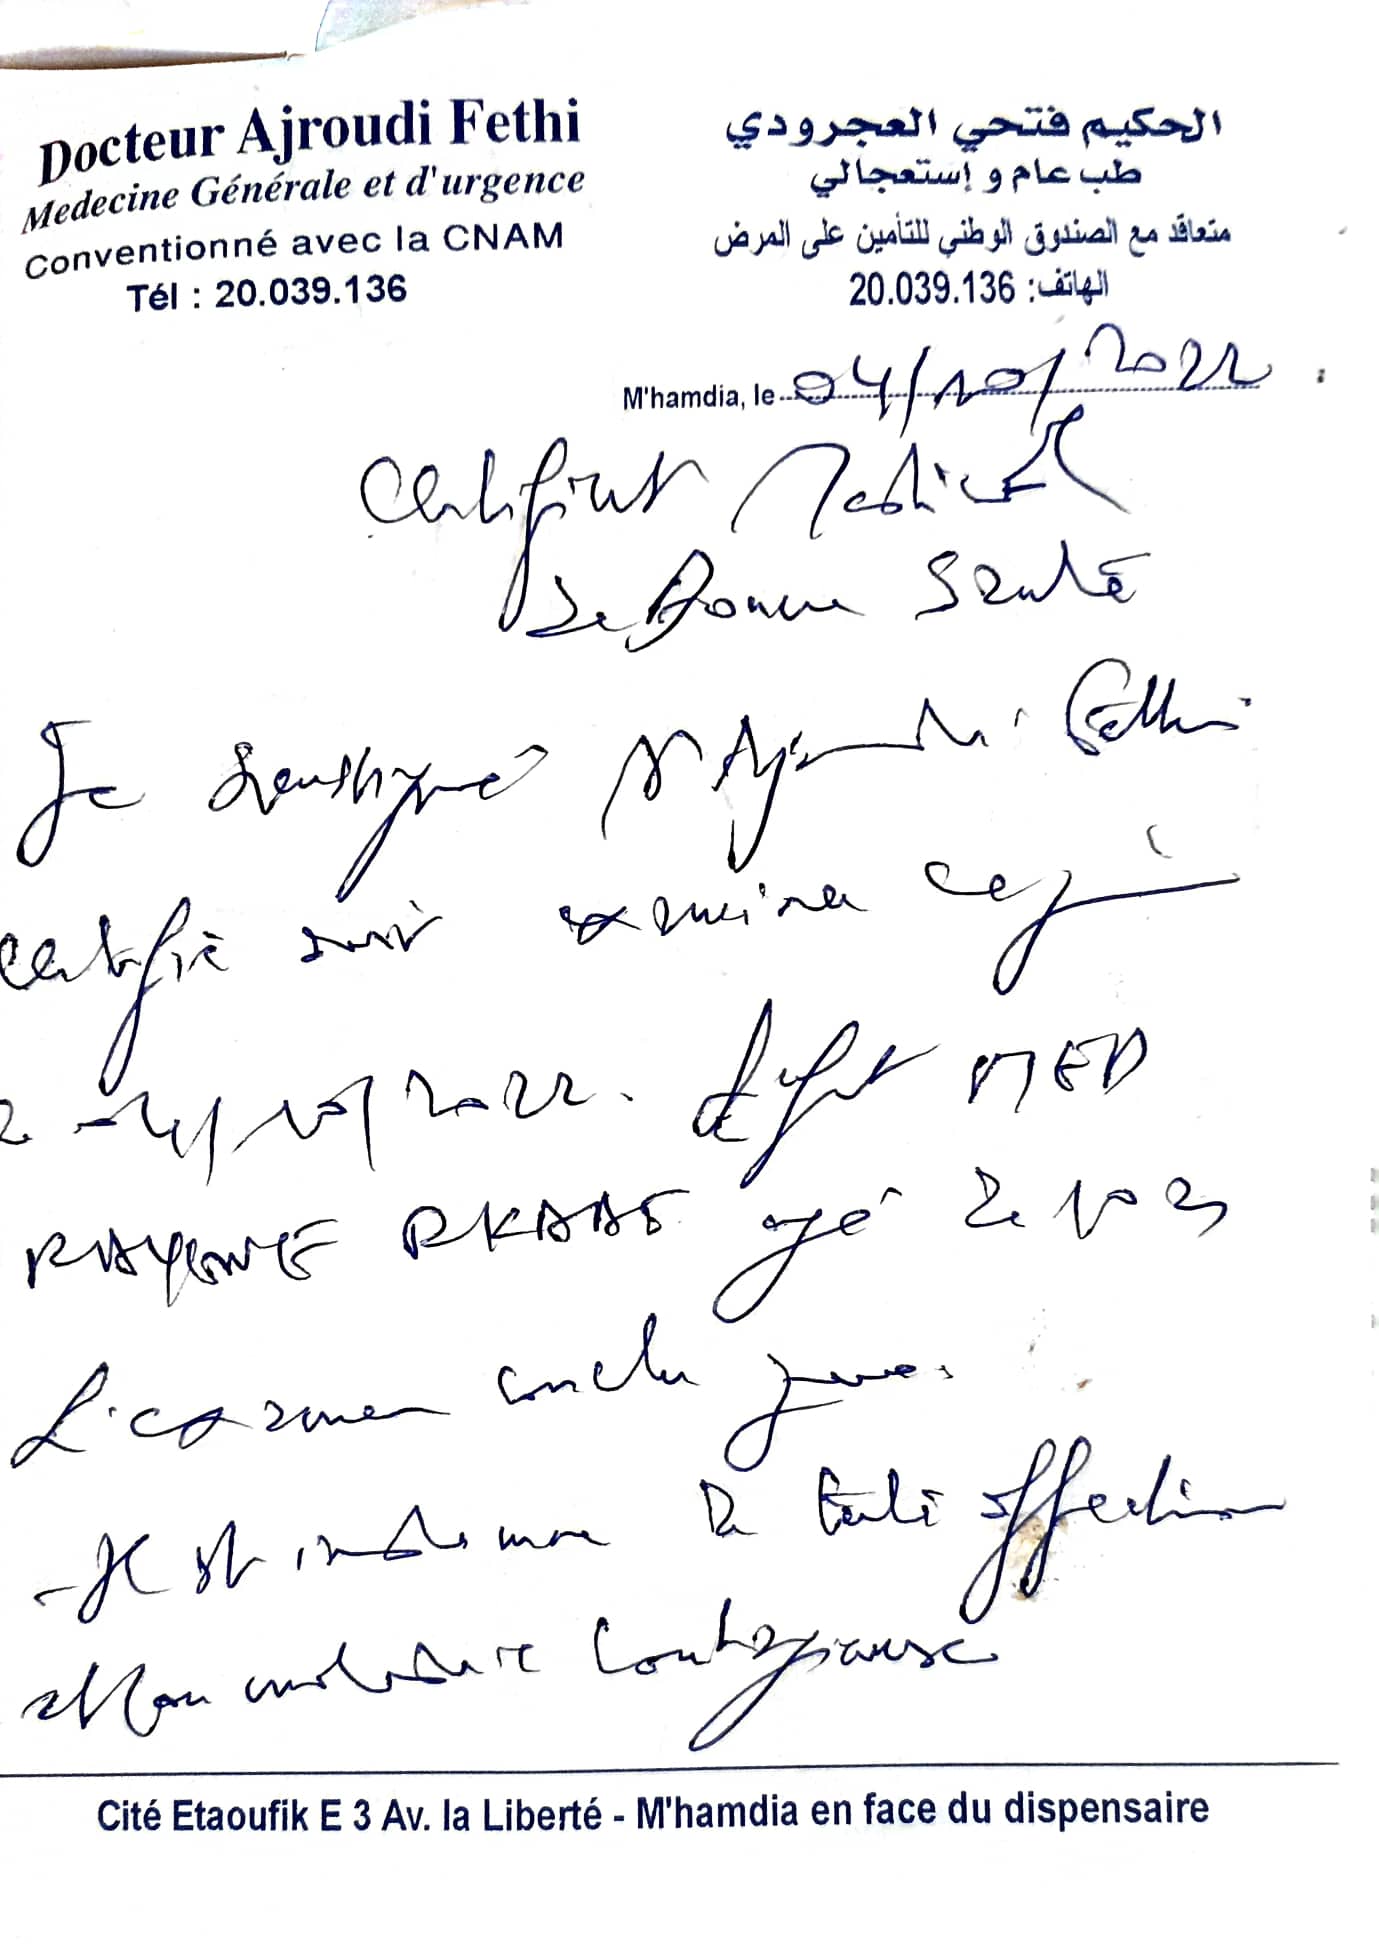 Docteur Ajroudi Fethi
Medecine Générale et d'urgence
Conventionné avec la CNAM
Tél : 20.039.136
الحكيم فتحي العجرودي
طب عام و إستعجالي
متعاقد مع الصندوق الوطني للتأمين على المرض
الهاتف: 20.039.136
M'hamdia, le 04/10/2022
Certificat Medical
de Bonne Santé
Je soussigné Dr Ajroudi Fethi
certifie avoir examiner ce jour
04/10/2022. MED
RAYENE agé de 10
L'examen conclu
- Il est indemne de toute affection
contagieuse
Cité Etaoufik E 3 Av. la Liberté - M'hamdia en face du dispensaire